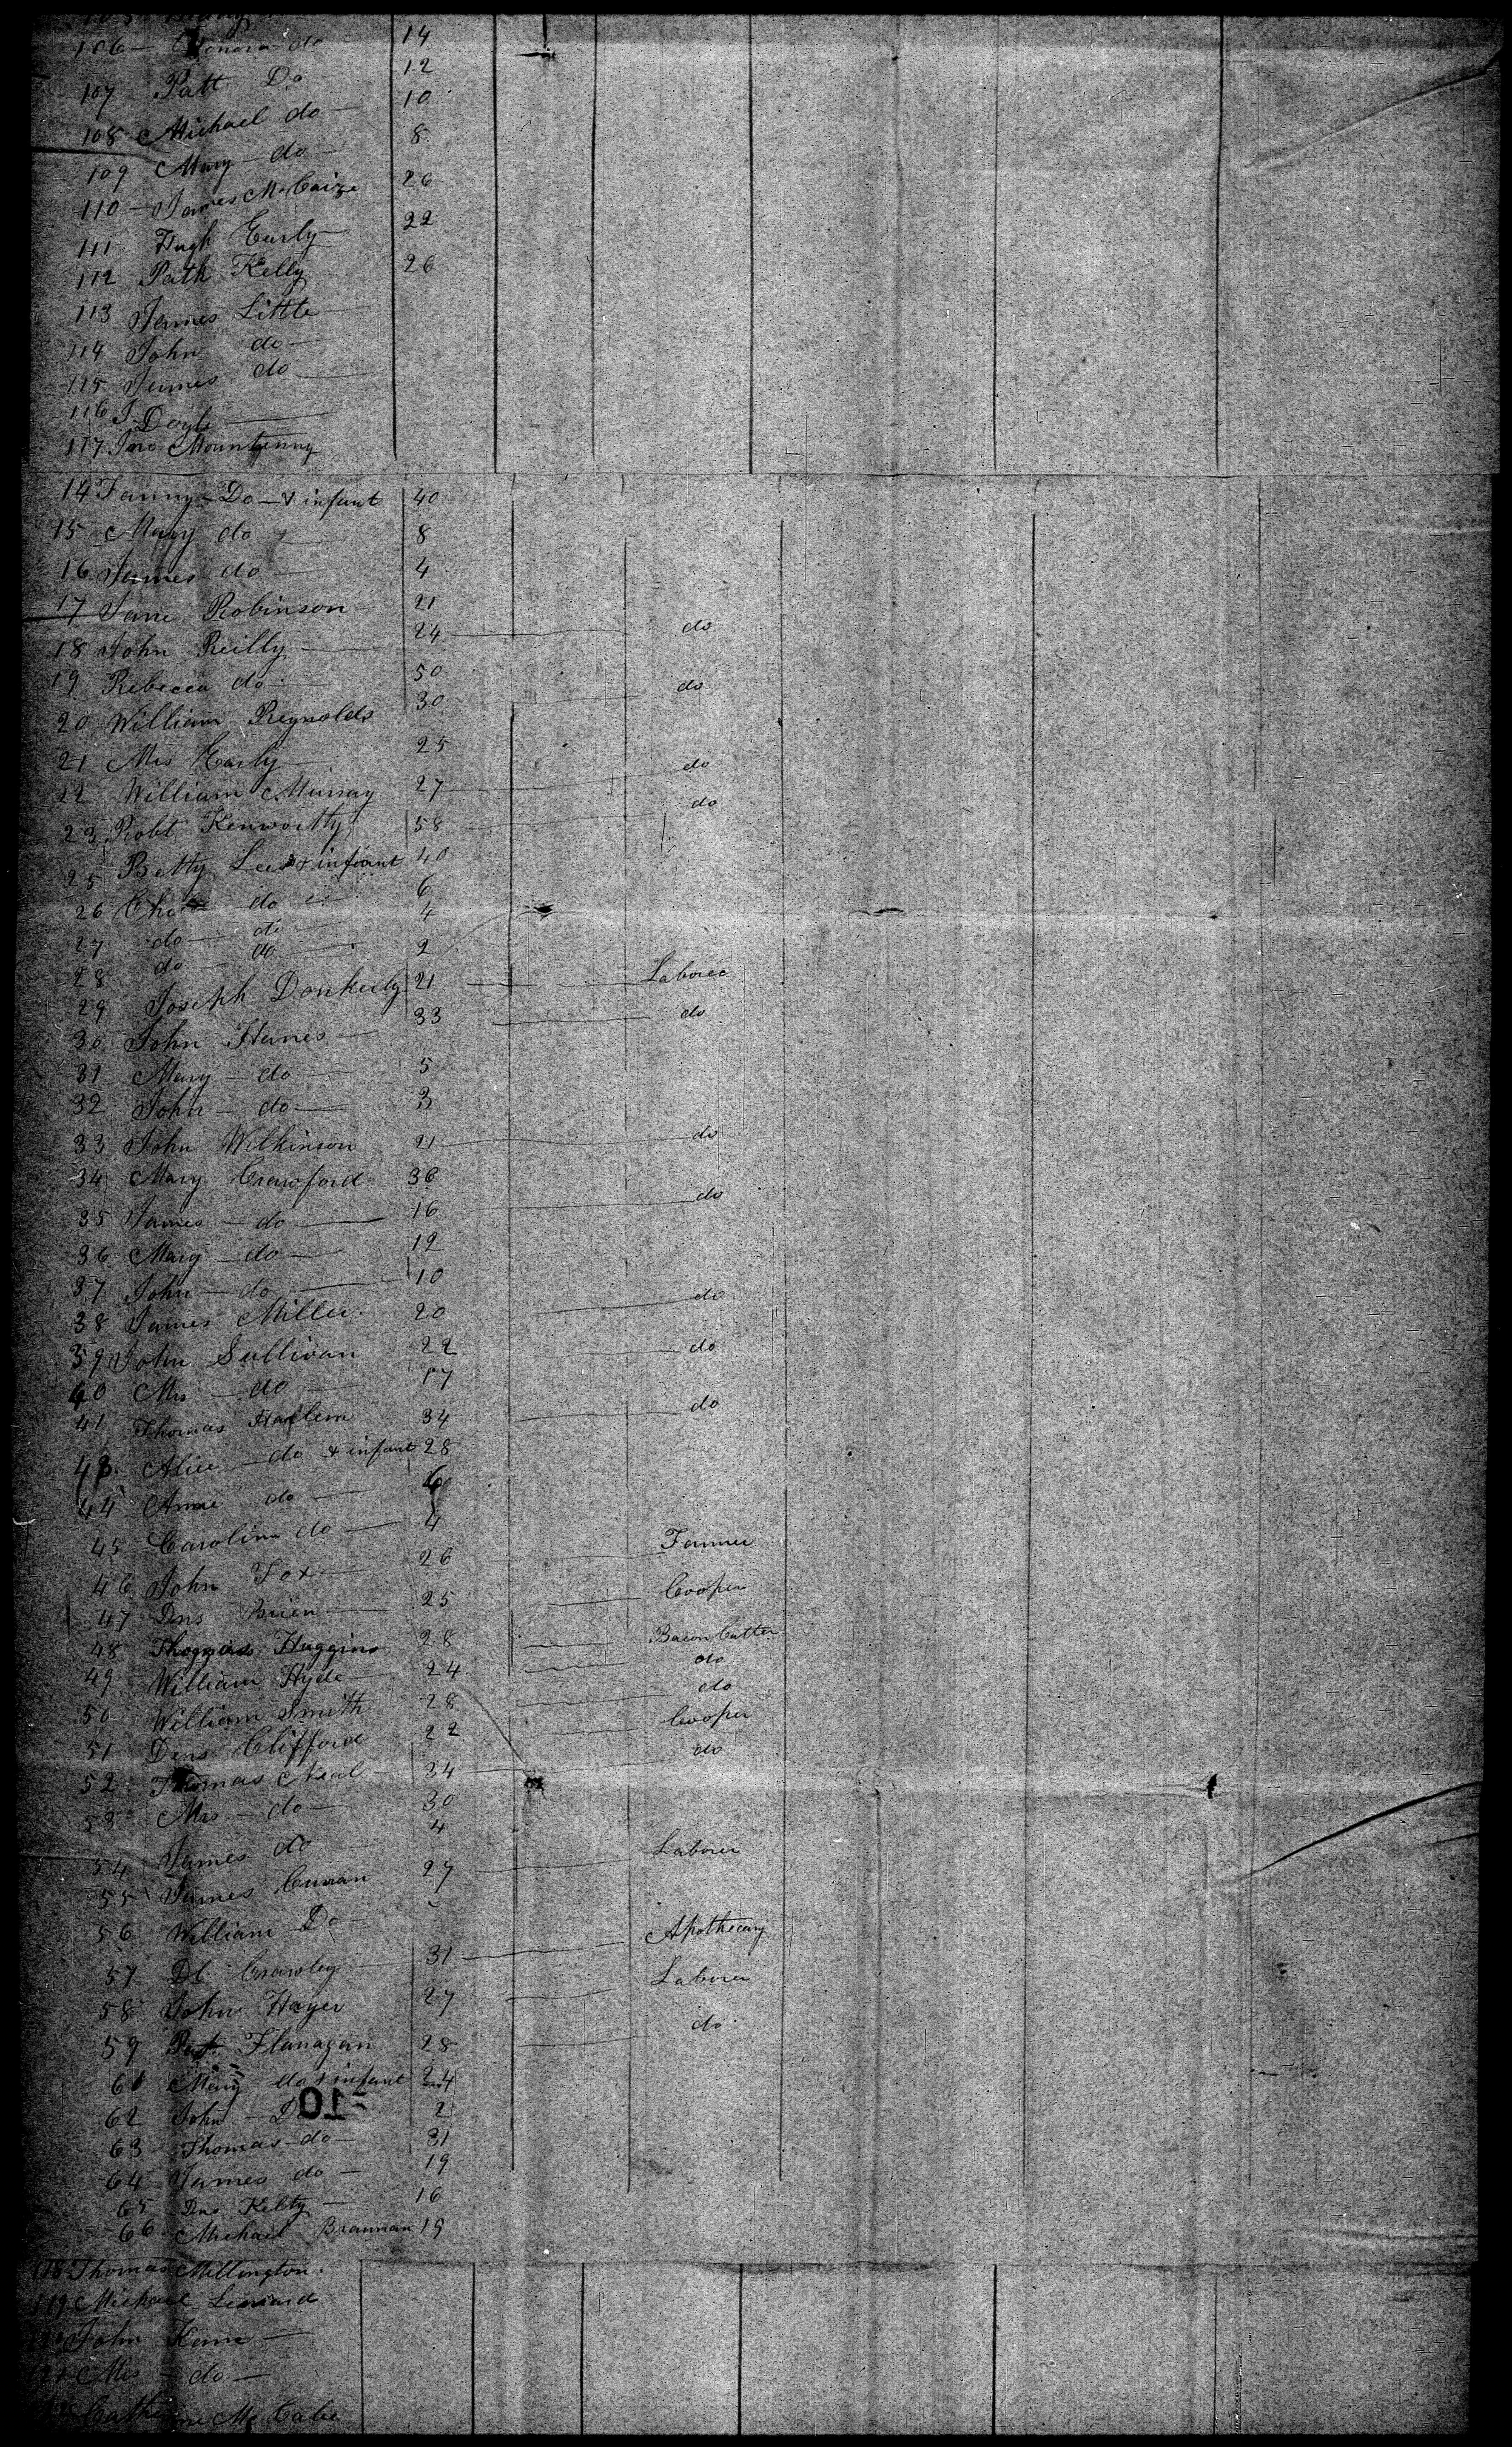 106 — Honora do 14
107 Patt Do 12
108 Michael do 10
109 Mary do 8
110 — James McCaize 26
111 Hugh Early 22
112 Patk Kelly 26
113 James Little
114 John do
115 James do
116 J. Doyle
117 Jno Mountenny
14 Fanny Do & infant 40
15 Mary do 8
16 James do 4
17 Jane Robinson 21
18 John Reilly 24 do
19 Rebecca do 50
20 William Reynolds 30 do
21 Mrs Early 25
22 William Murray 27 do
23 Robt Kenworthy 58 do
25 Betty Lees & infant 40
26 do 6
27 do do 4
28 do do 2
29 Joseph Donkerly 21 Laborer
30 John Hanes 33 do
31 Mary do 5
32 John do 3
33 John Wilkinson 21 do
34 Mary Crawford 36
35 James do 16 do
36 Mary do 12
37 John do 10
38 James Miller 20 do
39 John Sullivan 22 do
40 Mrs do 17
41 Thomas Harlem 34 do
43 Alice do & infant 28
44 Anne do 6
45 Caroline do 4
46 John Fox 26 Farmer
47 Dns Brien 25 Cooper
48 Thomas Huggins 28 Bacon Cutter
49 William Hyde 24 do
50 William Smith 28 do
51 Dens Clifford 22 Cooper
52 Thomas Neal 34 do
53 Mrs do 30
54 James do 4
55 James Curran 27 Laborer
56 William Do
57 Dl Crowley 31 Apothecary
58 John Hayes 27 Laborer
59 Pat Flanagan 28 do
61 Mary do & infant 24
62 John D 2
63 Thomas do 31
64 James do 19
65 Dns Kelty 16
66 Michael Brannan 19
118 Thomas Millington
119 Michael Leonard
John Kane
Mrs do
Catherine McCabe